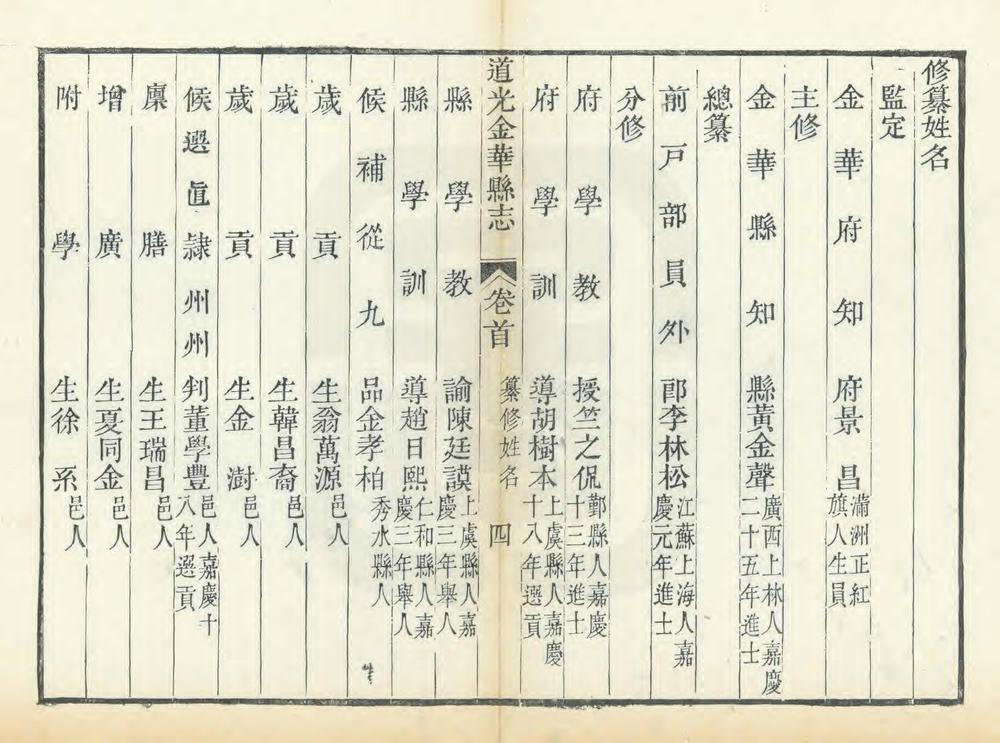 修纂姓名
監定
金華府知府景昌滿洲正紅旗人生員
主修
金華縣知縣黃金聲廣西上林人嘉慶二十五年進士
總纂
前戶部員外郎李林松江蘇上海人嘉慶元年進士
分修
府學教授竺之侃鄞縣人嘉慶十三年進士
府學訓導胡樹本上虞縣人嘉慶十八年選貢
道光金華縣志 卷首 纂修姓名 四
縣學教諭陳廷謨上虞縣人嘉慶三年舉人
縣學訓導趙日熙仁和縣人嘉慶三年舉人
候補從九品金孝柏秀水縣人
歲貢生翁萬源邑人
歲貢生韓昌裔邑人
歲貢生金澍邑人
候選直隸州州判董學豐邑人嘉慶十八年選貢
廩膳生王瑞昌邑人
增廣生夏同金邑人
附學生徐系邑人